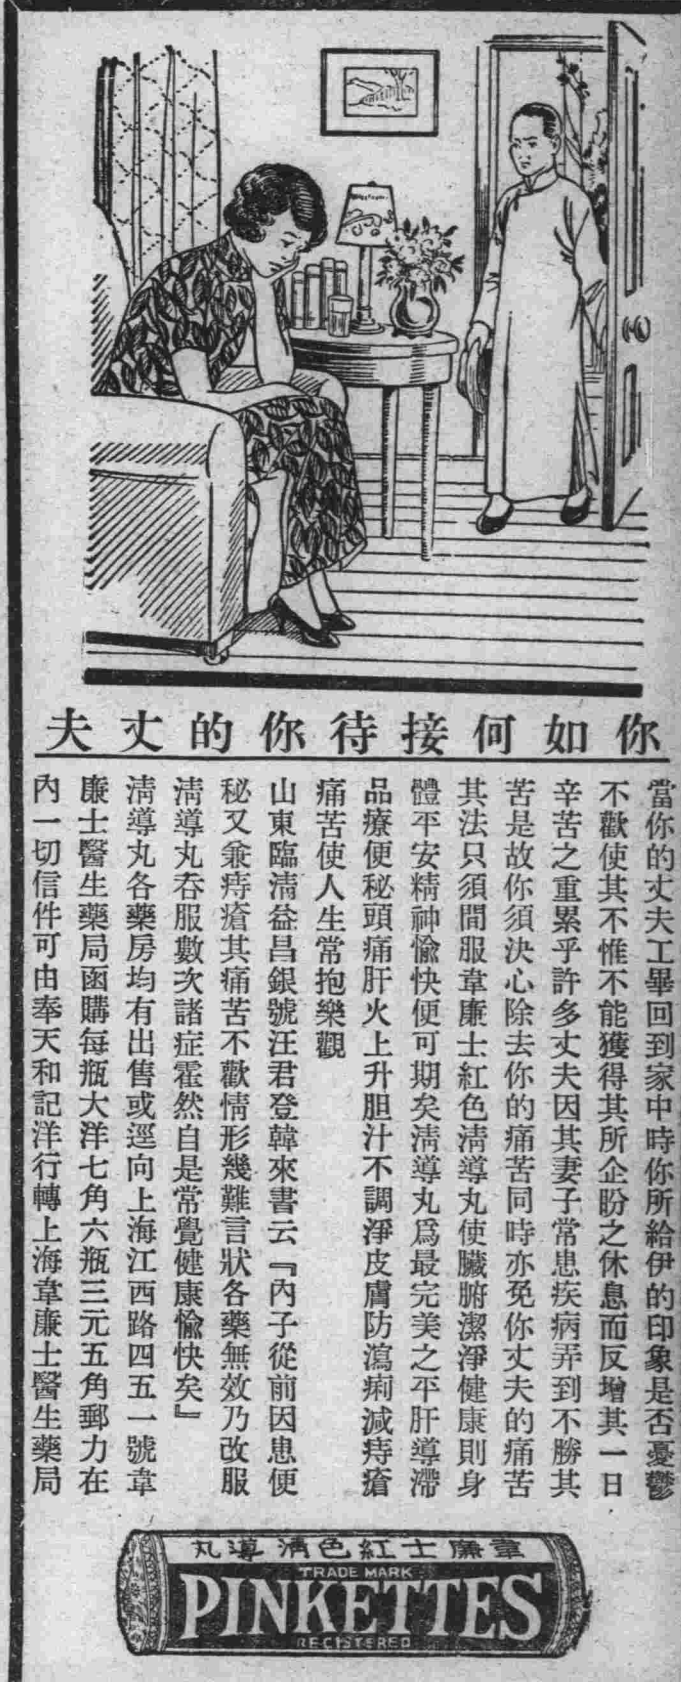 你如何接待你的丈夫
當你的丈夫工畢回到家中時你所給伊的印象是否憂鬱
不歡使其不惟不能獲得其所企盼之休息而反增其一日
辛苦之重累乎許多丈夫因其妻子常患疾病弄到不勝其
苦是故你須決心除去你的痛苦同時亦免你丈夫的痛苦
其法只須間服韋廉士紅色淸導丸使臟腑潔淨健康則身
體平安精神愉快便可期矣淸導丸爲最完美之平肝導滯
品療便秘頭痛肝火上升胆汁不調淨皮膚防瀉痢減痔瘡
痛苦使人生常抱樂觀
山東臨淸益昌銀號汪君登韓來書云『內子從前因患便
秘又兼痔瘡其痛苦不歡情形幾難言狀各藥無效乃改服
淸導丸吞服數次諸症霍然自是常覺健康愉快矣』
淸導丸各藥房均有出售或逕向上海江西路四五一號韋
廉士醫生藥局函購每瓶大洋七角六瓶三元五角郵力在
內一切信件可由奉天和記洋行轉上海韋廉士醫生藥局
韋廉士紅色淸導丸
TRADE MARK
PINKETTES
REGISTERED